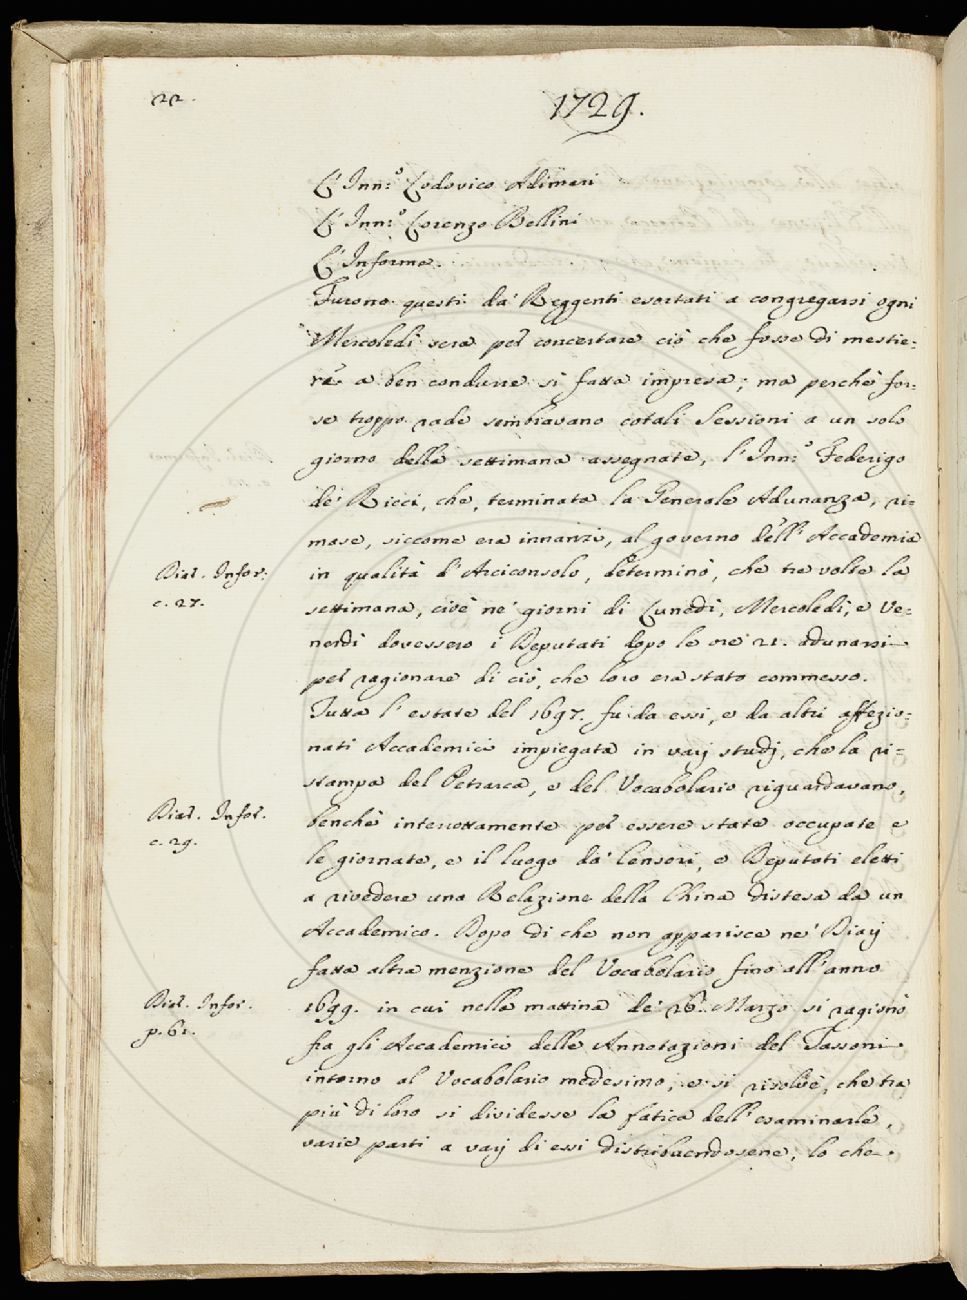 22.
1729.
L'Inn:º Lodovico Adimari
L'Inn:º Lorenzo Bellini
L'Informe.
Furono questi da' Reggenti esortati a congregarsi ogni
Mercoledì sera per concertare ciò che fosse di mestie-
re a ben condurre sì fatta impresa; ma perchè for-
se troppo rade sembravano cotali Sessioni a un solo
giorno della settimana assegnate, l'Inn:º Federigo
de' Ricci, che, terminata la Generale Adunanza, ri-
mase, siccome era innanzi, al governo dell'Accademia
in qualità d'Arciconsolo, determinò, che tre volte la
Diar. Infor:
c. 27.
settimana, cioè ne' giorni di Lunedì, Mercoledì, e Ve-
nerdì dovessero i Deputati dopo le ore 21. adunarsi
per ragionare di ciò, che loro era stato commesso.
Tutta l'estate del 1697. fu da essi, e da altri affezio-
nati Accademici impiegata in varj studj, che la ri-
stampa del Petrarca, e del Vocabolario riguardavano,
Diar. Infor.
c. 29.
benchè interrottamente per essere state occupate e
le giornate, e il luogo da' Censori, e Deputati eletti
a rivedere una Relazione della China distesa da un
Accademico. Dopo di che non apparisce ne' Diarj
fatta altra menzione del Vocabolario fino all'anno
Diar. Infor.
p. 61.
1699. in cui nella mattina de' 26. Marzo si ragionò
fra gli Accademici delle Annotazioni del Tassoni
intorno al Vocabolario medesimo, e si risolvè, che tra
più di loro si dividesse la fatica dell'esaminarle,
varie parti a varj di essi distribuendosene; lo che